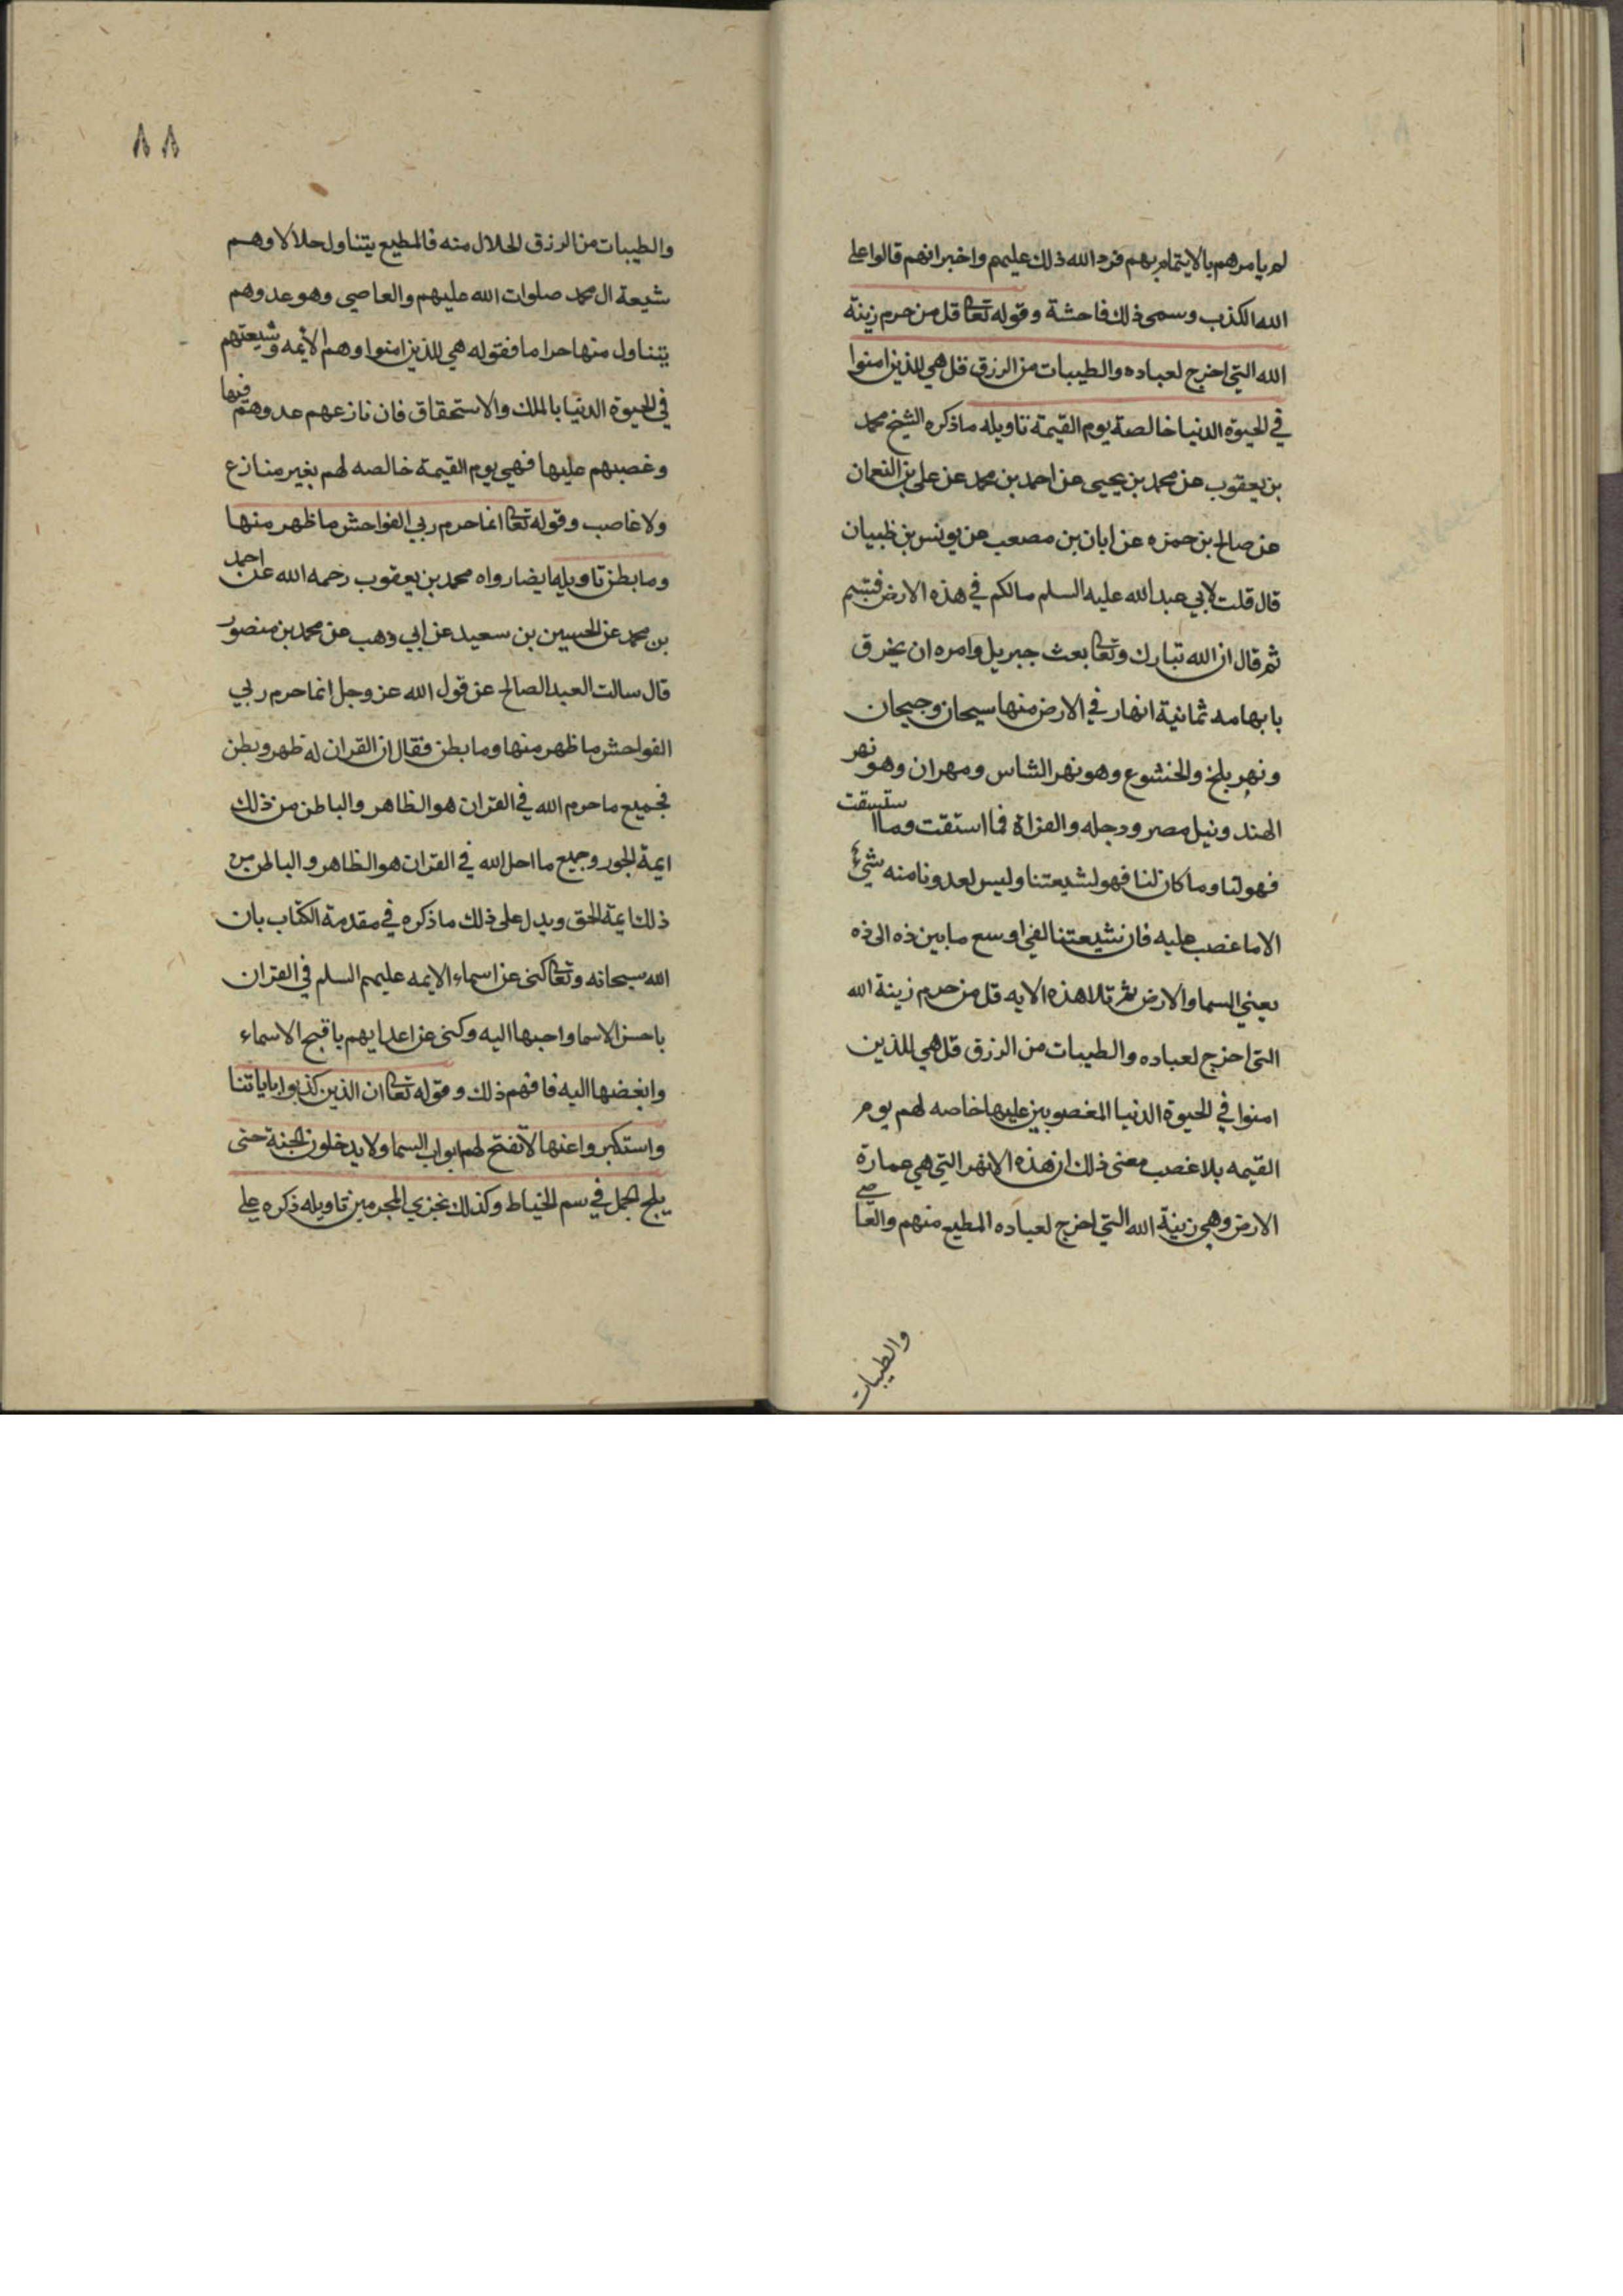 لم يامرهم بالايتمام بهم فرد الله ذلك عليهم واخبر انهم قالوا على
الله الكذب وسمى ذلك فاحشة وقوله تعا قل من حرم زينة
الله التي اخرج لعباده والطيبات من الرزق قل هي للذين امنوا
في الحيوة الدنيا خالصة يوم القيمة تاويله ما ذكره الشيخ محمد
بن يعقوب عن محمد بن يحيى عن احمد بن محمد عن علي بن النعمان
عن صالح بن حمزه عن ابان بن مصعب عن يونس بن ظبيان
قال قلت لابي عبد الله عليه السلم مالكم في هذه الارض فتبسم
ثم قال ان الله تبارك وتعا بعث جبريل وامره ان يخرق
بابهامه ثمانية انهار في الارض منها سيحان وجيحان
ونهر بلخ والخشوع وهو نهر الشاس ومهران وهو نهر
الهند ونيل مصر ودجله والفراة فما استقت وما استسقت
فهو لنا وما كان لنا فهو لشيعتنا وليس لعدونا منه شيء
الا ما غصب عليه فان شيعتنا لفي اوسع ما بين ذه الى ذه
يعني السما والارض ثم تلا هذه الايه قل من حرم زينة الله
التي اخرج لعباده والطيبات من الرزق قل هي للذين
امنوا في الحيوة الدنيا المغصوبين عليها خاصه لهم يوم
القيمه بلا غصب معنى ذلك ان هذه الانهر التي هي عمارة
الارض وهي زينة الله التي اخرج لعباده المطيع منهم والعاصي
والطيبات
٨٨
والطيبات من الرزق الحلال منه فالمطيع يتناول حلالا وهم
شيعة ال محمد صلوات الله عليهم والعاصي وهو عدوهم
يتناول منها حراما فقوله هي للذين امنوا وهم الائمه وشيعتهم
في الحيوة الدنيا بالملك والاستحقاق فان نازعهم عدوهم فيها
وغصبهم عليها فهي يوم القيمة خالصه لهم بغير منازع
ولا غاصب وقوله تعا انما حرم ربي الفواحش ما ظهر منها
وما بطن تاويله ايضا رواه محمد بن يعقوب رحمه الله عن احمد
بن محمد عن الحسين بن سعيد عن ابي وهب عن محمد بن منصور
قال سالت العبد الصالح عن قول الله عز وجل انما حرم ربي
الفواحش ما ظهر منها وما بطن فقال ان القران له ظهر وبطن
فجميع ما حرم الله في القران هو الظاهر والباطن من ذلك
ايمة الجور وجميع ما احل الله في القران هو الظاهر والباطن من
ذلك ايمة الحق ويدل على ذلك ما ذكره في مقدمة الكتاب بان
الله سبحانه وتعا كنى عن اسماء الايمه عليهم السلم في القران
باحسن الاسما واحبها اليه وكنى عن اعدايهم باقبح الاسماء
وابغضها اليه فافهم ذلك وقوله تعا ان الذين كذبوا باياتنا
واستكبروا عنها لا تفتح لهم ابواب السما ولا يدخلون الجنة حتى
يلج الجمل في سم الخياط وكذلك نجزي المجرمين تاويله ذكره علي